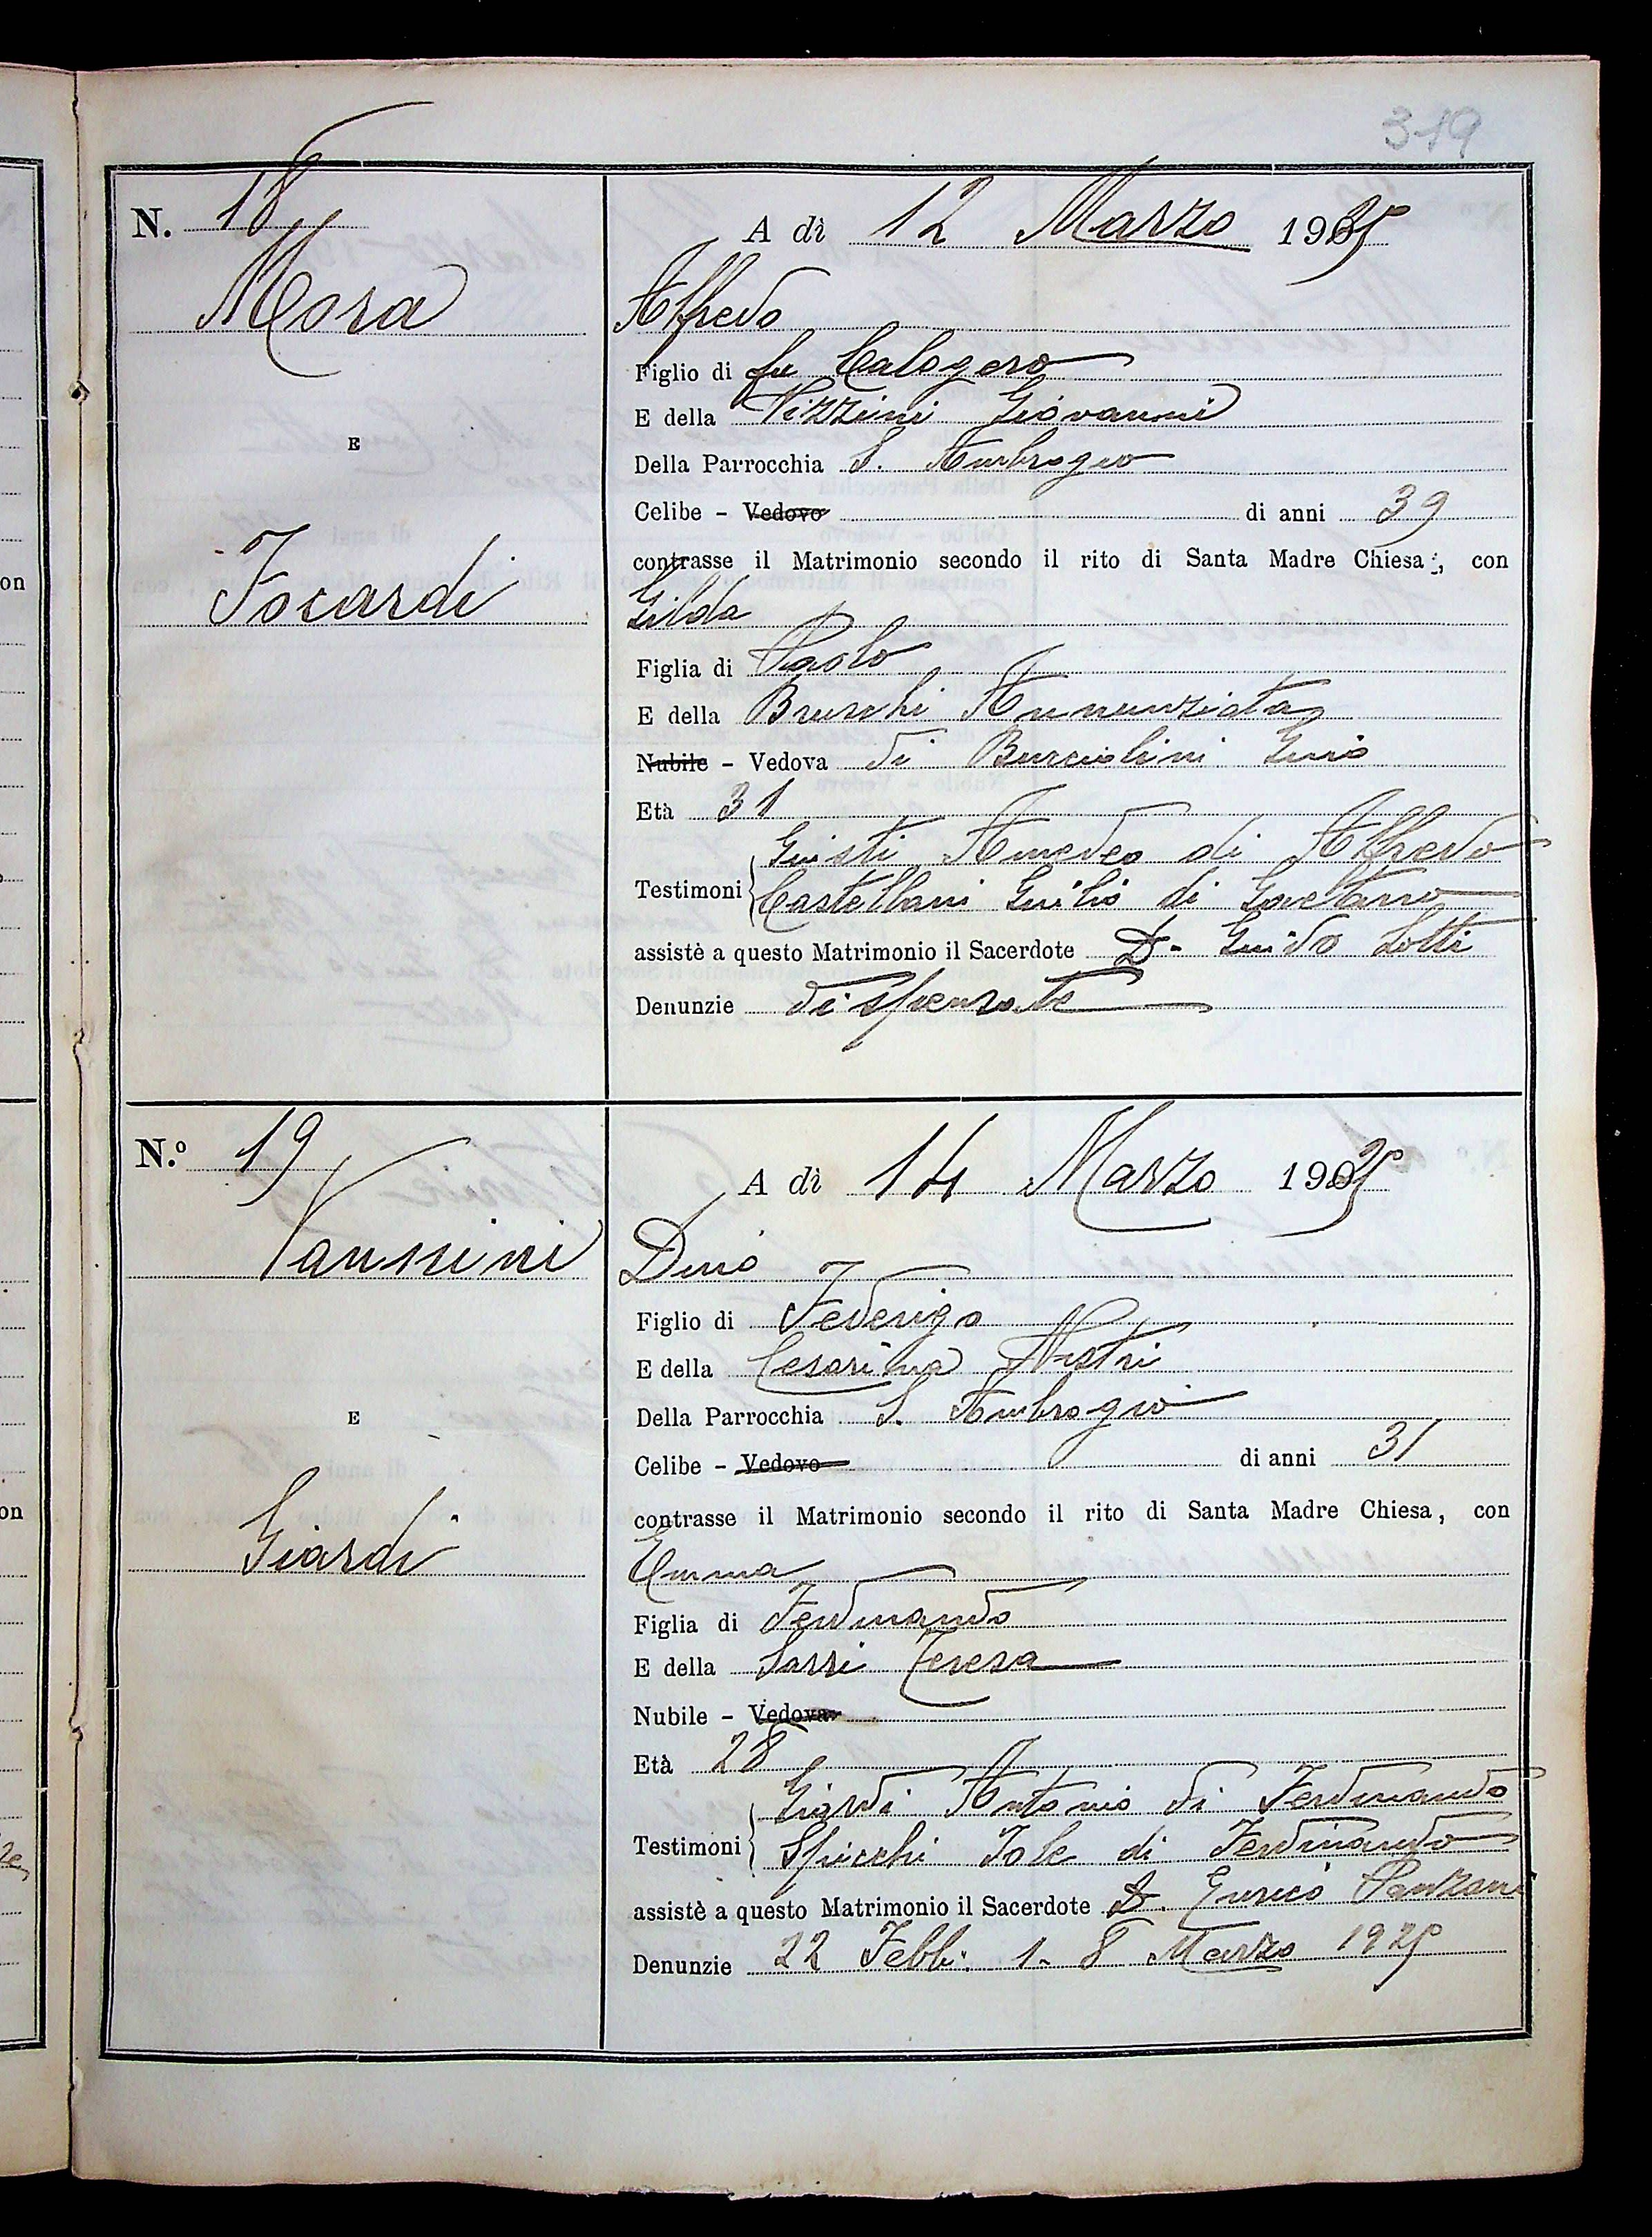 319
N. 18
A dì 12 Marzo 1925
Mora
Alfredo
Figlio di fu Calogero
E della Vizzini Giovanni
E
Della Parrocchia S. Ambrogio
Celibe - Vedovo di anni 39
contrasse il Matrimonio secondo il rito di Santa Madre Chiesa, con
Focardi
Gilda
Figlia di Paolo
E della Bruschi Annunziata
Nubile - Vedova di Burciolini Gino
Età 31
Testimoni Giusti Amedeo di Alfredo
Castellani Giulio di Gaetano
assistè a questo Matrimonio il Sacerdote D. Guido Lotti
Denunzie dispensate
N.º 19
A dì 14 Marzo 1925
Vannini
Dino
Figlio di Federigo
E della Cesarina Nistri
Della Parrocchia S. Ambrogio
E
Celibe - Vedovo di anni 31
contrasse il Matrimonio secondo il rito di Santa Madre Chiesa, con
Giardi
Emma
Figlia di Ferdinando
E della Sarri Teresa
Nubile - Vedova
Età 28
Testimoni Giardi Antonio di Ferdinando
Spicchi Iole di Ferdinando
assistè a questo Matrimonio il Sacerdote D. Enrico Panzani
Denunzie 22 Febb: 1- 8 Marzo 1925